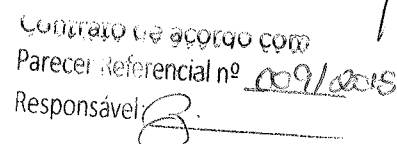 Contrato de acordo com
Parecer Referencial nº 009/2015
Responsável: